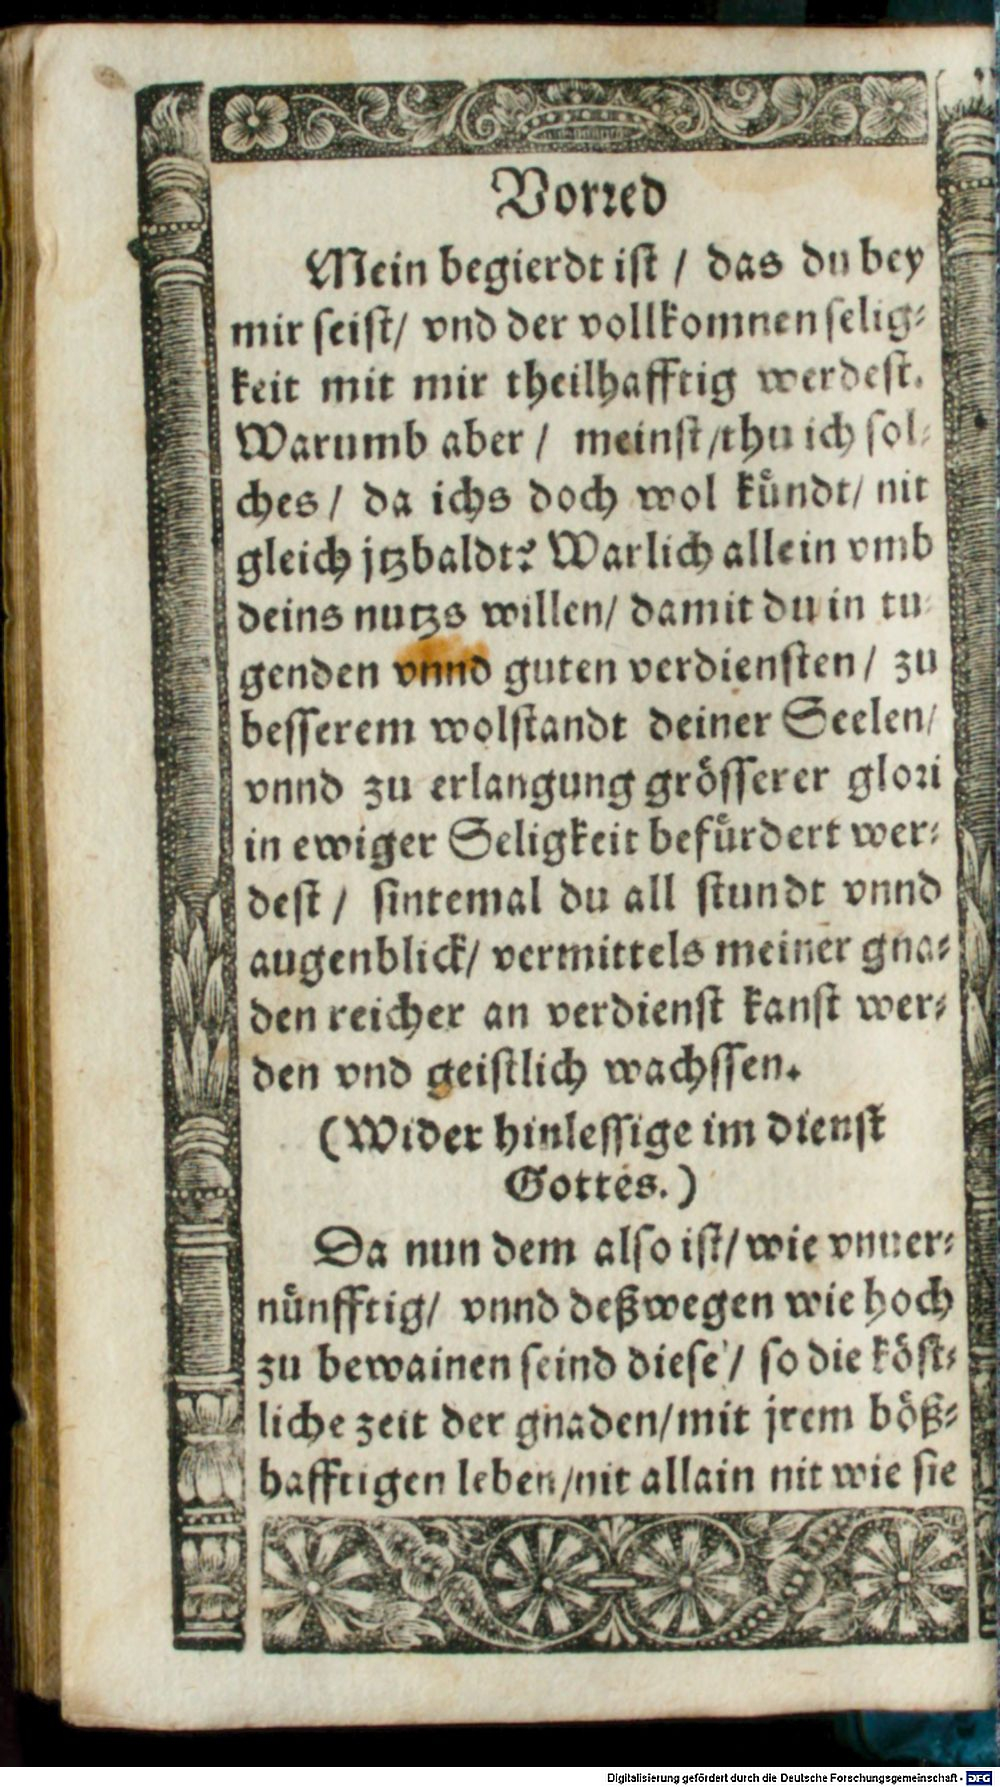 Vorred
Mein begierdt ist / das du bey
mir seist / vnd der vollkomnen selig⸗
keit mit mir theilhafftig werdest.
Warumb aber / meinst / thu ich sol⸗
ches / da ichs doch wol kündt / nit
gleich jtzbaldt? Warlich allein vmb
deins nutzs willen / damit du in tu⸗
genden vnnd guten verdiensten / zu
besserem wolstandt deiner Seelen /
vnnd zu erlangung grösserer glori
in ewiger Seligkeit befürdert wer⸗
dest / sintemal du all stundt vnnd
augenblick / vermittels meiner gna⸗
den reicher an verdienst kanst wer⸗
den vnd geistlich wachssen.
(Wider hinlessige im dienst
Gottes.)
Da nun dem also ist / wie vnuer⸗
nünfftig / vnnd deßwegen wie hoch
zu bewainen seind diese / so die köst⸗
liche zeit der gnaden / mit jrem böß⸗
hafftigen leben / nit allain nit wie sie
Digitalisierung gefördert durch die Deutsche Forschungsgemeinschaft - DFG